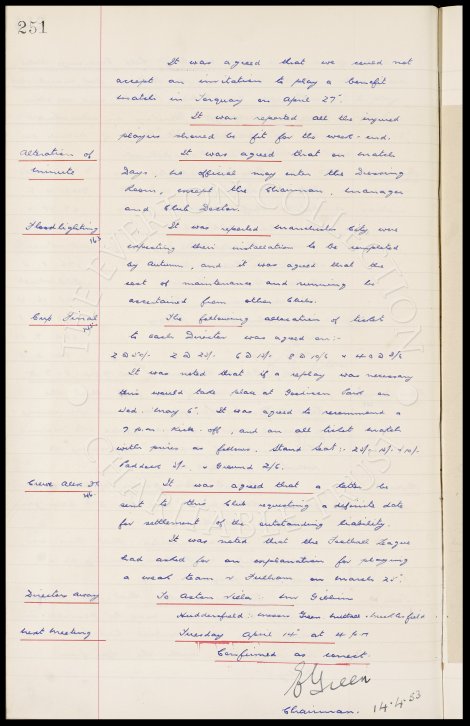 251
It was agreed that we could not
accept an invitation to play a benefit
match in Torquay on April 27th.
It was reported all the injured
players should be fit for the week-end.
Alteration of
Minute
It was agreed that on match
days, no official may enter the Dressing
Room, except the Chairman, Manager
and Club Doctor.
Floodlighting
163
It was reported Manchester City were
expecting their installation to be completed
by Autumn, and it was agreed that the
cost of maintenance and running be
ascertained from other Clubs.
Cup Final
The following allocation of tickets
to each Director was agreed on:-
2 @ 50/- 2 @ 25/- 6 @ 15/- 8 @ 10/6 & 40 @ 3/6
It was noted that if a replay was necessary
this would take place at Goodison Park on
Wed. May 6th. It was agreed to recommend a
7 p.m. Kick-off, and an all ticket match
with prices as follows. Stand Seat:- 20/- 15/- & 10/-
Paddock 5/- & Ground 2/6.
Crewe Alex FC
It was agreed that a letter be
sent to this Club requesting a definite date
for settlement of the outstanding liability.
It was noted that the Football League
had asked for an explanation for playing
a weak team v Fulham on March 25th
Directors away
To Aston Villa:- Mr Gibbins
Huddersfield: Messrs Green
Next Meeting
Tuesday April 14th at 4 p.m
Confirmed as correct.
E Green
Chairman. 14.4.53
THE EVERTON COLLECTION
CHARITABLE TRUST